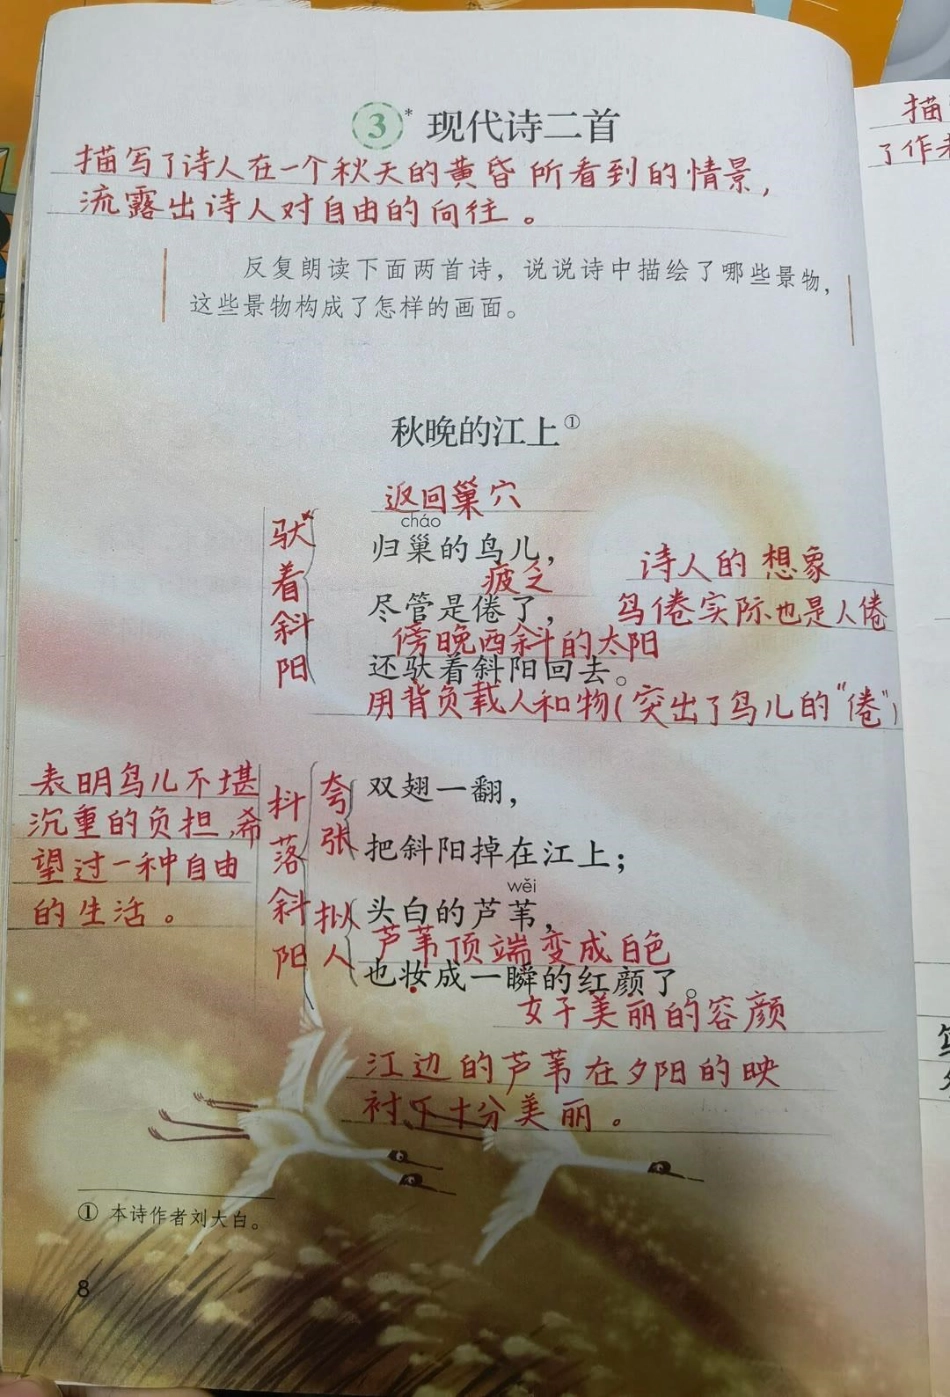 3* 现代诗二首
描写了诗人在一个秋天的黄昏所看到的情景,
流露出诗人对自由的向往。
反复朗读下面两首诗，说说诗中描绘了哪些景物，
这些景物构成了怎样的画面。
秋晚的江上①
返回巢穴
cháo
归巢的鸟儿，
疲乏
尽管是倦了，
傍晚西斜的太阳
还驮着斜阳回去。
用背负载人和物(突出了鸟儿的"倦")
驮着斜阳
诗人的想象
鸟倦实际也是人倦
双翅一翻，
把斜阳掉在江上；
wěi
头白的芦苇，
芦苇顶端变成白色
也妆成一瞬的红颜了。
女子美丽的容颜
夸张
拟人
抖落斜阳
表明鸟儿不堪
沉重的负担,希
望过一种自由
的生活。
江边的芦苇在夕阳的映
衬下十分美丽。
① 本诗作者刘大白。
8
描
了作者